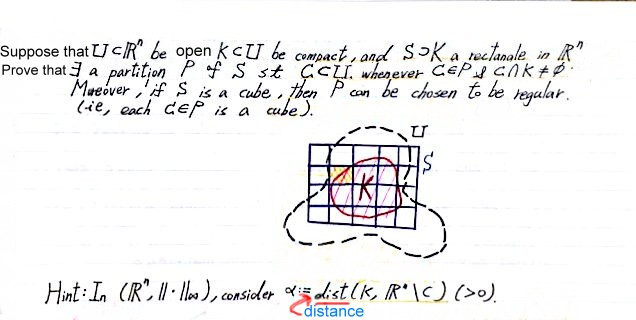 Suppose that U⊂ℝⁿ be open K⊂U be compact, and S⊃K a rectangle in ℝⁿ
Prove that ∃ a partition P of S st C⊂U whenever C∈P & C∩K≠∅.
Moreover, if S is a cube, then P can be chosen to be regular.
(ie, each C∈P is a cube).
U
S
K
Hint: In (ℝⁿ, ||·||∞), consider α := dist(K, ℝⁿ\C) (>0).
distance